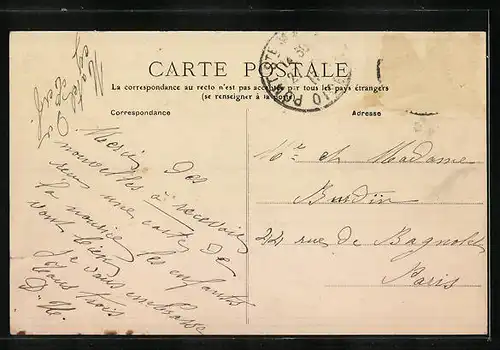 CARTE POSTALE
La correspondance au recto n'est pas acceptée par tous les pays étrangers
(se renseigner à la poste)
Correspondance
Adresse
Merci des
nouvelles
reçu une carte de
la nourrice les enfants
vont bien
je vous embrasse
tous trois
Mr et Madame
Burdin
22 rue de Bagnolet
Paris